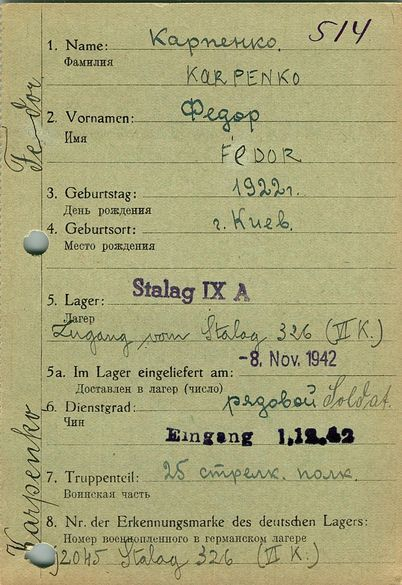 514
1. Name: Карпенко.
Фамилия
KARPENKO
2. Vornamen: Федор
Имя
FEDOR
3. Geburtstag: 1922 г.
День рождения
4. Geburtsort: г. Киев.
Место рождения
5. Lager: Stalag IX A
Лагер
Zugang vom Stalag 326 (VI K.)
-8. Nov. 1942
5a. Im Lager eingeliefert am:
Доставлен в лагер (число)
6. Dienstgrad: рядовой Soldat.
Чин
Eingang 1.12.42
7. Truppenteil: 25 стрелк. полк.
Воинская часть
8. Nr. der Erkennungsmarke des deutschen Lagers:
Номер военнопленного в германском лагере
72045 Stalag 326 (VI K.)
Karpenko Fedor